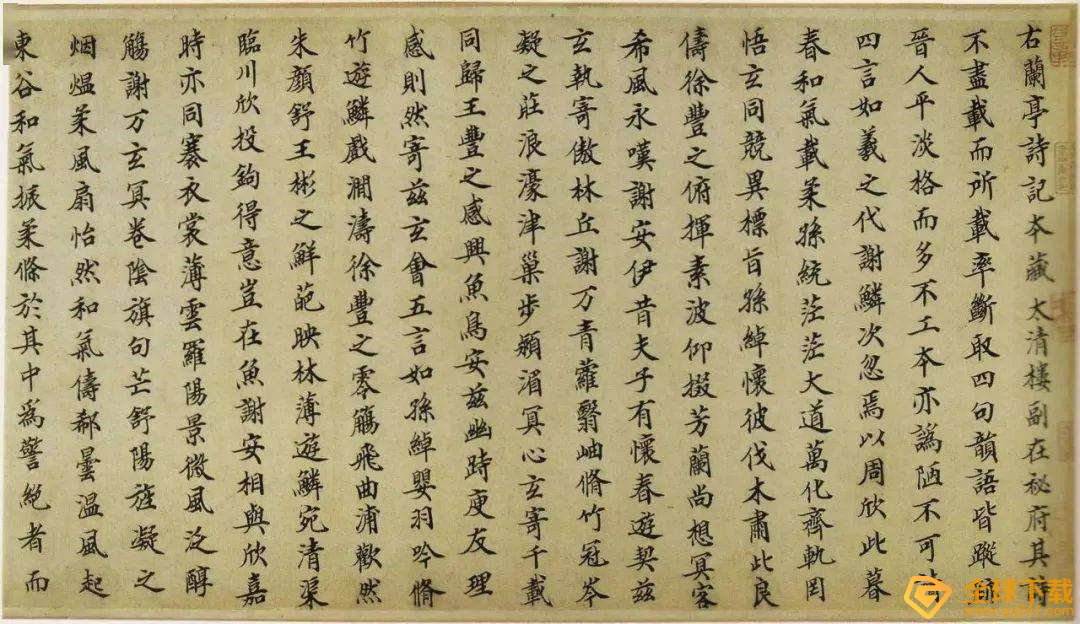 右蘭亭詩記本藏太清樓副在秘府其
不盡載而所載率斷取四句韻語皆蹤
晉人平淡格而多不工本亦譌陋不可
四言如羲之代謝鱗次忽焉以周欣此暮
春和氣載柔孫統茫茫大道萬化齊軌罔
悟玄同競異標旨孫綽懷彼伐木肅此良
儔徐豐之俯揮素波仰掇芳蘭尚想冥客
希風永嘆謝安伊昔夫子有懷春遊契茲
玄執寄傲林丘謝万青蘿翳岫脩竹冠岑
凝之莊浪濠津巢步潁湄冥心玄寄千載
同歸王豐之感興魚鳥安茲幽跱庾友理
感則然寄茲玄會五言如孫綽嚶羽吟脩
竹遊鱗戲瀾濤徐豐之零觴飛曲浦歡然
朱顏舒王彬之鮮葩映林薄遊鱗宛清渠
臨川欣投鉤得意豈在魚謝安相與欣嘉
時亦同褰衣裳薄雲羅陽景微風泛醇
觴謝万玄冥卷陰旗句芒舒陽旌凝之
烟熅柔風扇怡然和氣儔郗曇温風起
東谷和氣振柔條於其中為警絕者而
全球下载